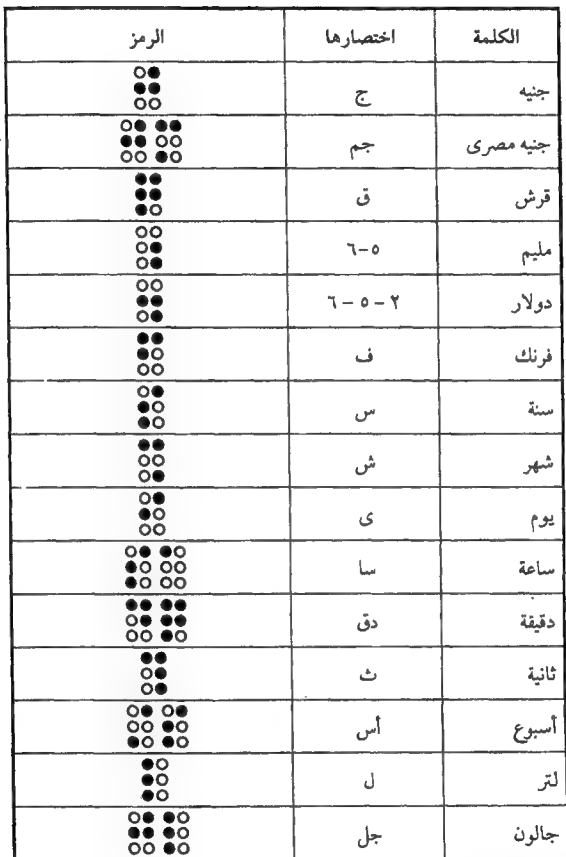 الكلمة اختصارها الرمز
جنيه ج
جنيه مصرى جم
قرش ق
مليم ٥-٦
دولار ٢ - ٥ - ٦
فرنك ف
سنة س
شهر ش
يوم ى
ساعة سا
دقيقة دق
ثانية ث
أسبوع أس
لتر ل
جالون جل